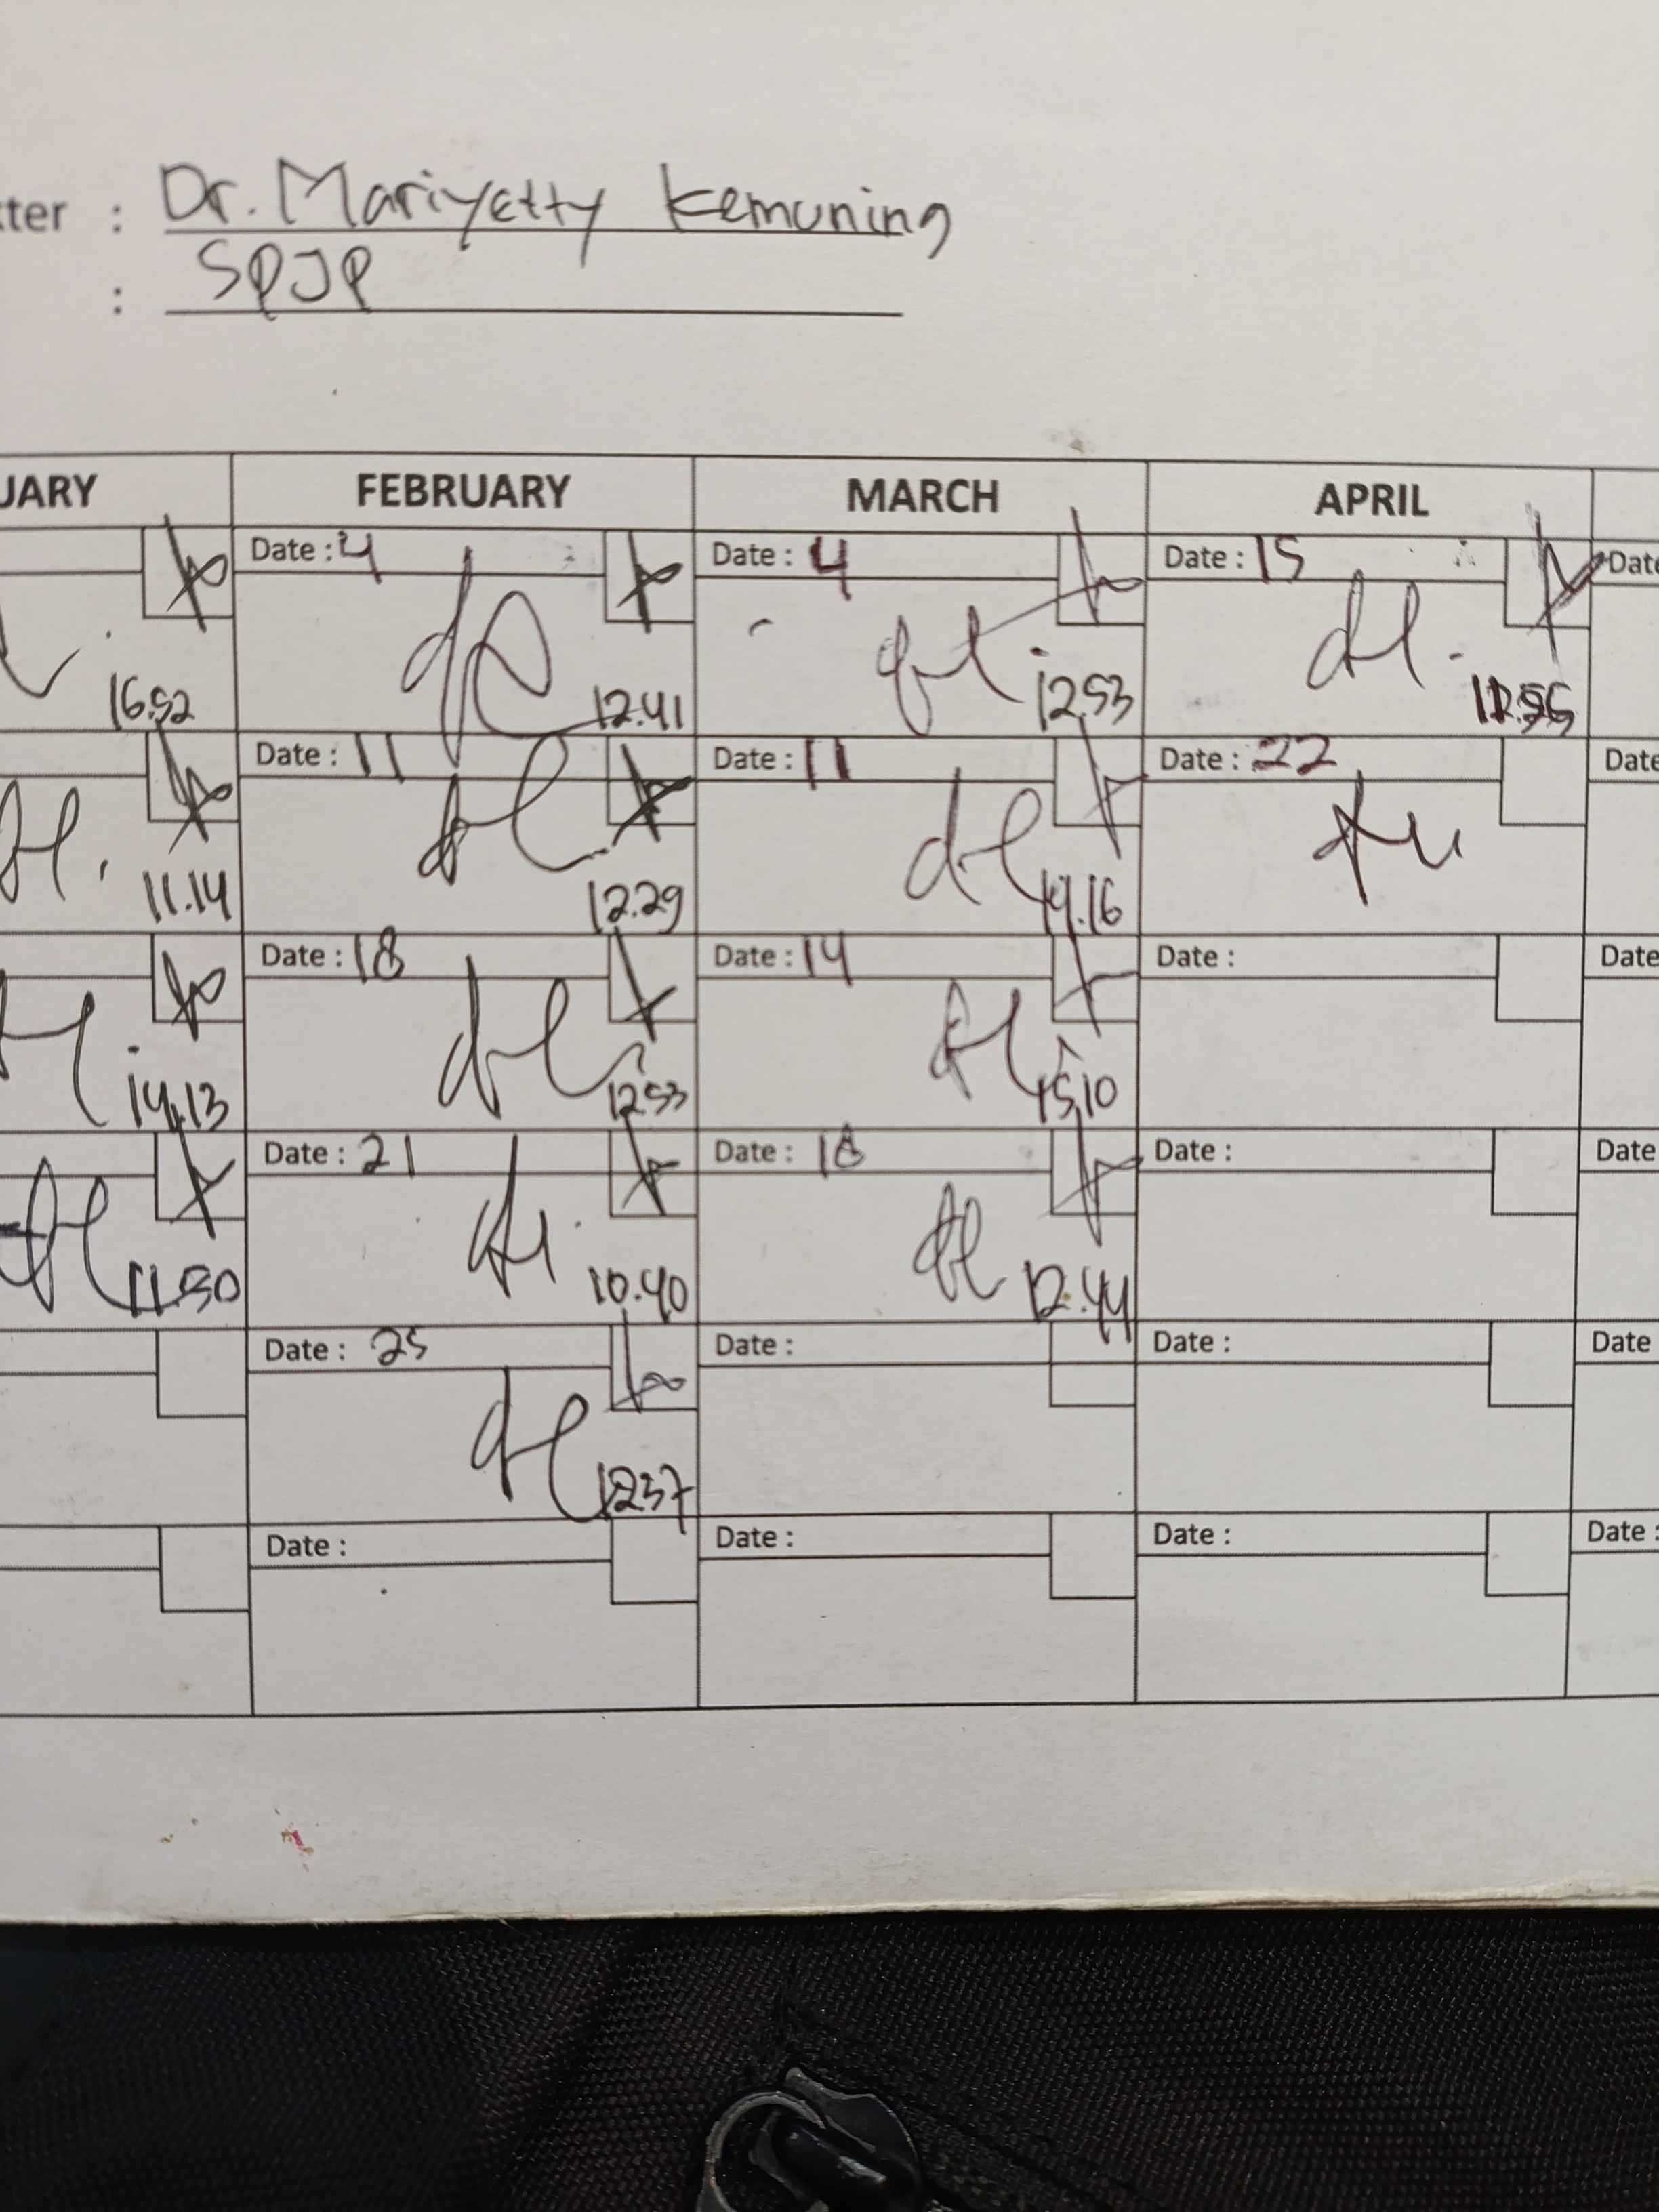 tter : Dr. Mariyetty Kemuning
: SPJP
UARY FEBRUARY MARCH APRIL
Date : 4 Date : 4 Date : 15 Date
16.52 12.41 12.53
Date : 11 Date : 11 Date : 22 Date
11.14 12.29 14.16
Date : 18 Date : 14 Date : Date
14.13 12.53 15.10
Date : 21 Date : 18 Date : Date
11.50 10.40 12.44
Date : 25 Date : Date : Date
12.57
Date : Date : Date : Date :